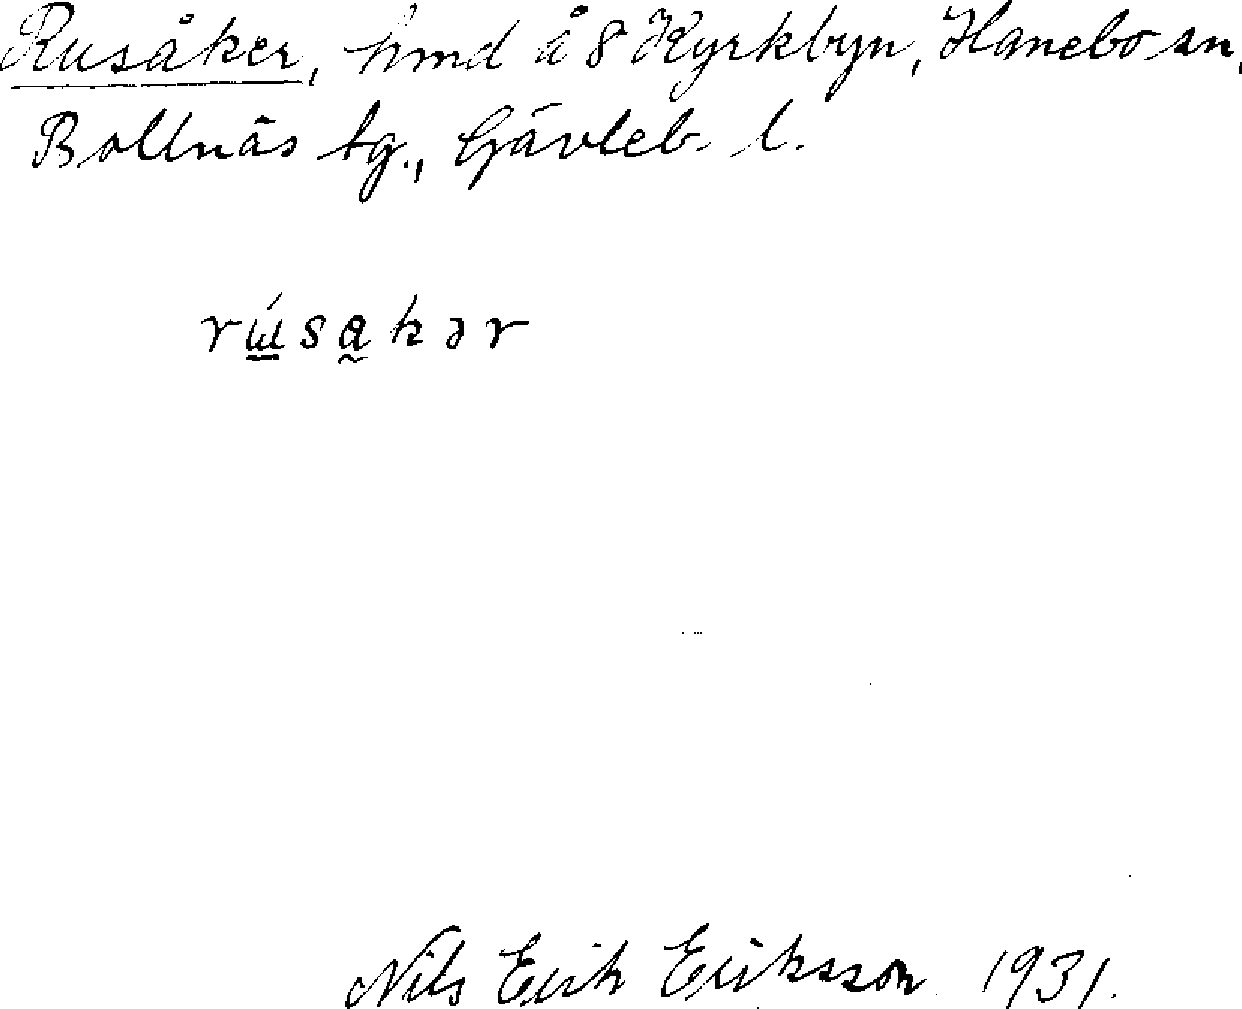 Rusåker, hmd å 8 Kyrkbyn, Hanebo sn,
Bollnäs tg., Gävleb. l.
rɯ́sakər
Nils Erik Eriksson 1931.